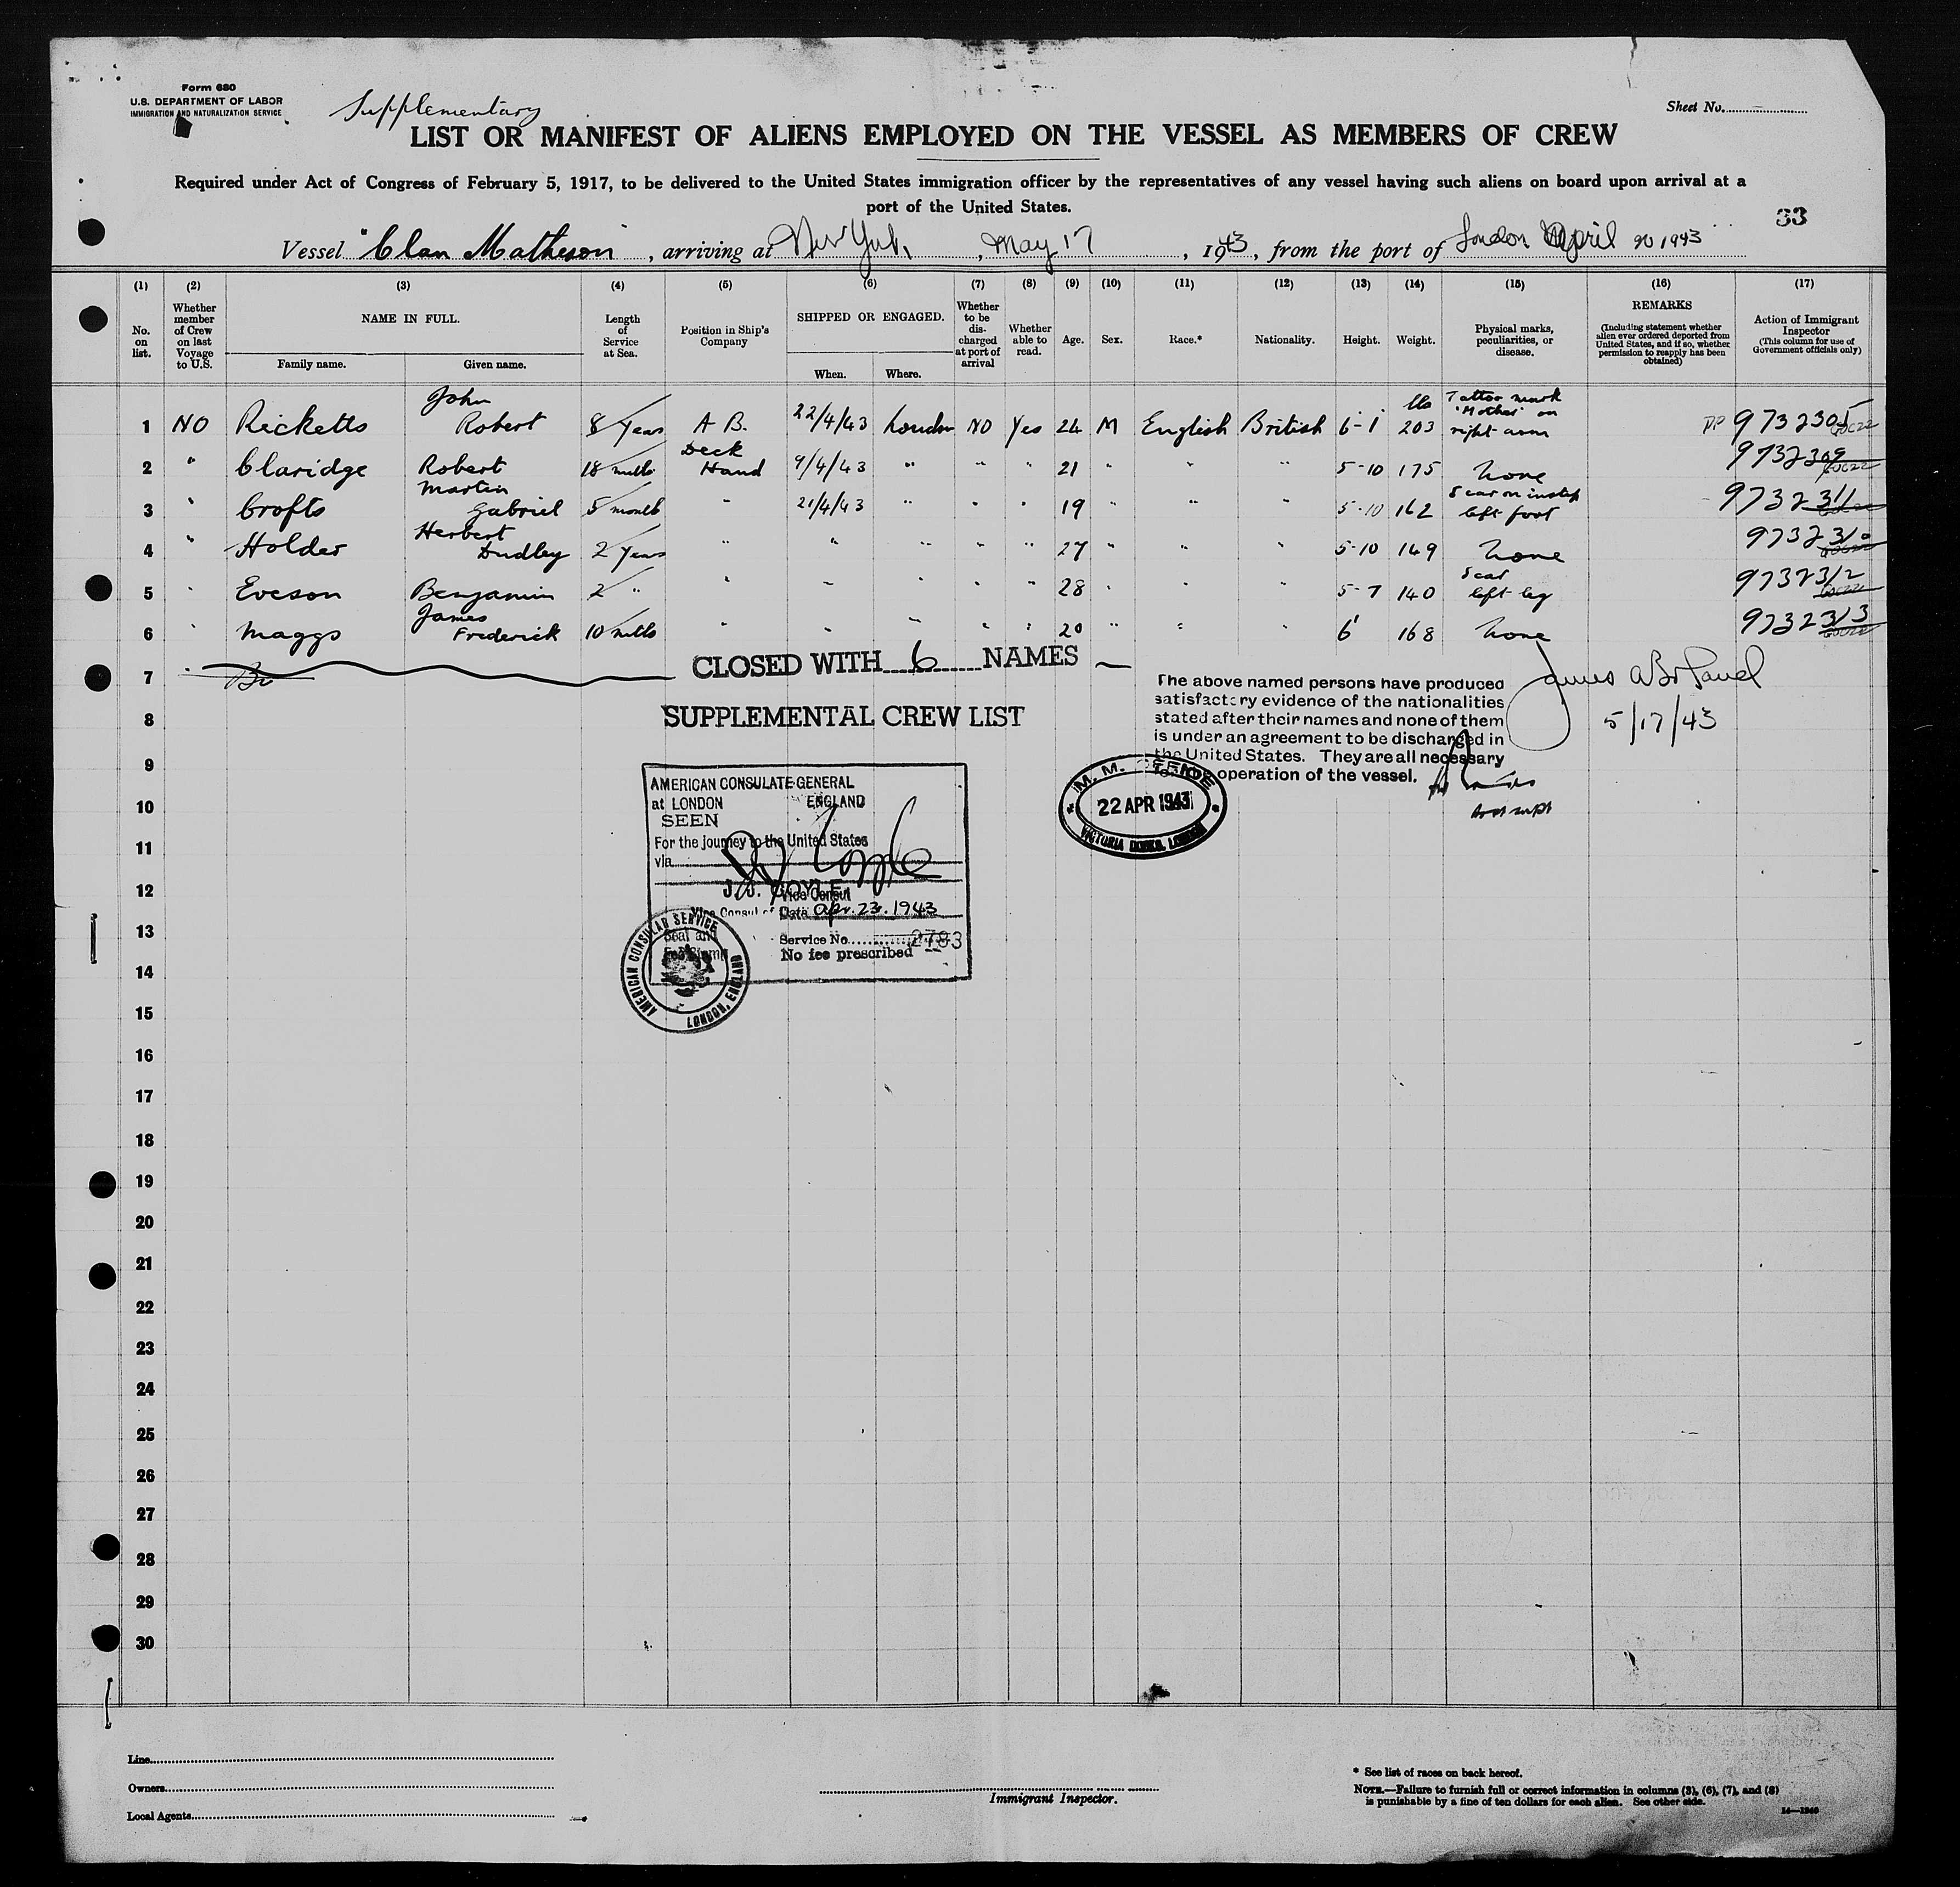 Form 680
U.S. DEPARTMENT OF LABOR
IMMIGRATION AND NATURALIZATION SERVICE
Supplementary
Sheet No.
LIST OR MANIFEST OF ALIENS EMPLOYED ON THE VESSEL AS MEMBERS OF CREW
Required under Act of Congress of February 5, 1917, to be delivered to the United States immigration officer by the representatives of any vessel having such aliens on board upon arrival at a
port of the United States.
33
Vessel "Clan Matheson", arriving at New York, May 17, 1943, from the port of London April 1943
(1) (2) (3) (4) (5) (6) (7) (8) (9) (10) (11) (12) (13) (14) (15) (16) (17)
No. on list.
Whether member of Crew on last Voyage to U.S.
NAME IN FULL.
Family name. Given name.
Length of Service at Sea.
Position in Ship's Company
SHIPPED OR ENGAGED.
When. Where.
Whether to be discharged at port of arrival
Whether able to read.
Age. Sex. Race.* Nationality. Height. Weight.
Physical marks, peculiarities, or disease.
REMARKS
(Including statement whether alien ever ordered deported from United States, and if so, whether permission to reapply has been obtained)
Action of Immigrant Inspector
(This column for use of Government officials only)
1 NO Ricketts John Robert 8 Years A B. 22/4/43 London NO Yes 24 M English British 6-1 lbs 203 Tattoo mark "Mother" on right arm 9732305
2 " Claridge Robert 18 mths Deck Hand 9/4/43 " " " 21 " " " 5-10 175 none 9732309
3 " Crofts Martin Gabriel 5 months " 21/4/43 " " " 19 " " " 5-10 162 Scar on instep left foot 9732311
4 " Holder Herbert Dudley 2 Years " " " " " 27 " " " 5-10 149 none 9732310
5 " Eveson Benjamin 2 " " " " " " 28 " " " 5-7 140 Scar left leg 9732312
6 " Maggs James Frederick 10 mths " " " " " 20 " " " 6' 168 none 9732313
7
CLOSED WITH 6 NAMES
SUPPLEMENTAL CREW LIST
The above named persons have produced
satisfactory evidence of the nationalities
stated after their names and none of them
is under an agreement to be discharged in
the United States. They are all necessary
operation of the vessel.
5/17/43
22 APR 1943
VICTORIA DOCKS, LONDON
AMERICAN CONSULATE GENERAL
at LONDON ENGLAND
SEEN
For the journey to the United States
via
Vice Consul
Date Apr. 23. 1943
Seal and
Fee Stamp
Service No. 2783
No fee prescribed
AMERICAN CONSULAR SERVICE
LONDON, ENGLAND
8
9
10
11
12
13
14
15
16
17
18
19
20
21
22
23
24
25
26
27
28
29
30
Line
Owners
Local Agents
Immigrant Inspector.
* See list of races on back hereof.
NOTE.—Failure to furnish full or correct information in columns (3), (6), (7), and (8)
is punishable by a fine of ten dollars for each alien. See other side.